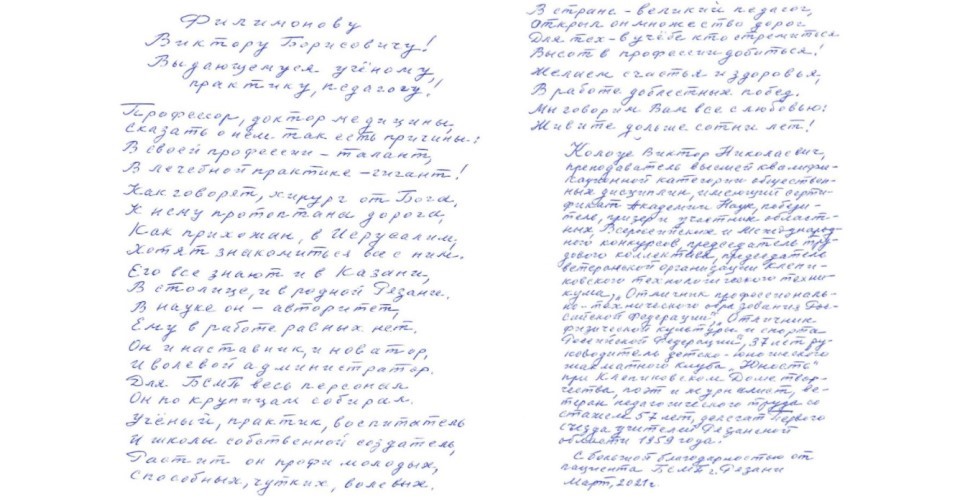 Филимонову
Виктору Борисовичу!
Выдающемуся учёному,
практику, педагогу!
Профессор, доктор медицины,
Сказать о нём так есть причины:
В своей профессии – талант,
В лечебной практике – гигант!
Как говорят, хирург от Бога,
К нему протоптана дорога,
Как прихожан, в Иерусалим,
Хотят знакомиться все с ним.
Его все знают и в Казани,
В столице, и в родной Рязани.
В науке он – авторитет,
Ему в работе равных нет.
Он и наставник, и новатор,
И волевой администратор.
Для БСМП весь персонал
Он по крупицам собирал.
Учёный, практик, воспитатель
И школы собственной создатель,
Растит он профи молодых,
Способных, чутких, волевых.
В стране – великий педагог,
Открыл он множество дорог
Для тех – в учёбе кто стремиться
Высот в профессии добиться!
Желаем счастья и здоровья,
В работе доблестных побед.
Мы говорим Вам все с любовью:
Живите дольше сотни лет!
Колоус Виктор Николаевич,
преподаватель высшей квалифи-
кационной категории обществен-
ных дисциплин, имеющий серти-
фикат Академии Наук, победи-
тель, призер и участник област-
ных, Всероссийских и Международ-
ного конкурсов, председатель тру-
дового коллектива, председатель
ветеранской организации Клепи-
ковского технологического техни-
кума, „Отличник профессиональ-
но-технического образования Рос-
сийской Федерации", „Отличник
физической культуры и спорта
Российской Федерации", 37 лет ру-
ководитель детско-юношеского
шахматного клуба „Юность"
при Клепиковском Доме твор-
чества, поэт и журналист, ве-
теран педагогического труда со
стажем 57 лет, делегат Первого
съезда учителей Рязанской
области 1959 года.
С большой благодарностью от
пациента БСМП г. Рязани
Март, 2021г.